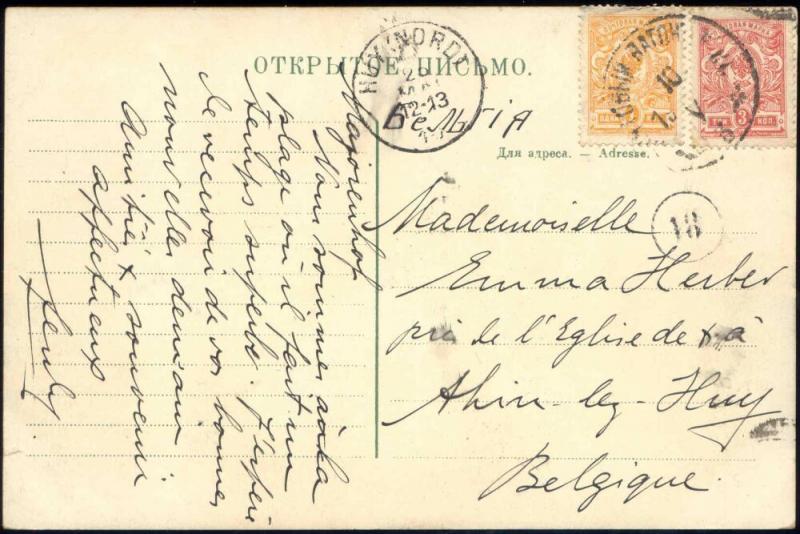 ОТКРЫТОЕ ПИСЬМО.
HUY (NORD)
12-13
Бельгія
3 КОП.
Для адреса. — Adresse.
18
Mademoiselle
Emma Herber
près de l'Eglise de à
Ahin-lez-Huy
Belgique.
Majorenhof
Nous sommes à la
plage où il fait un
temps superbe. J'espère
recevoir de vos bonnes
nouvelles demain
Amitiés & souvenir
affectueux